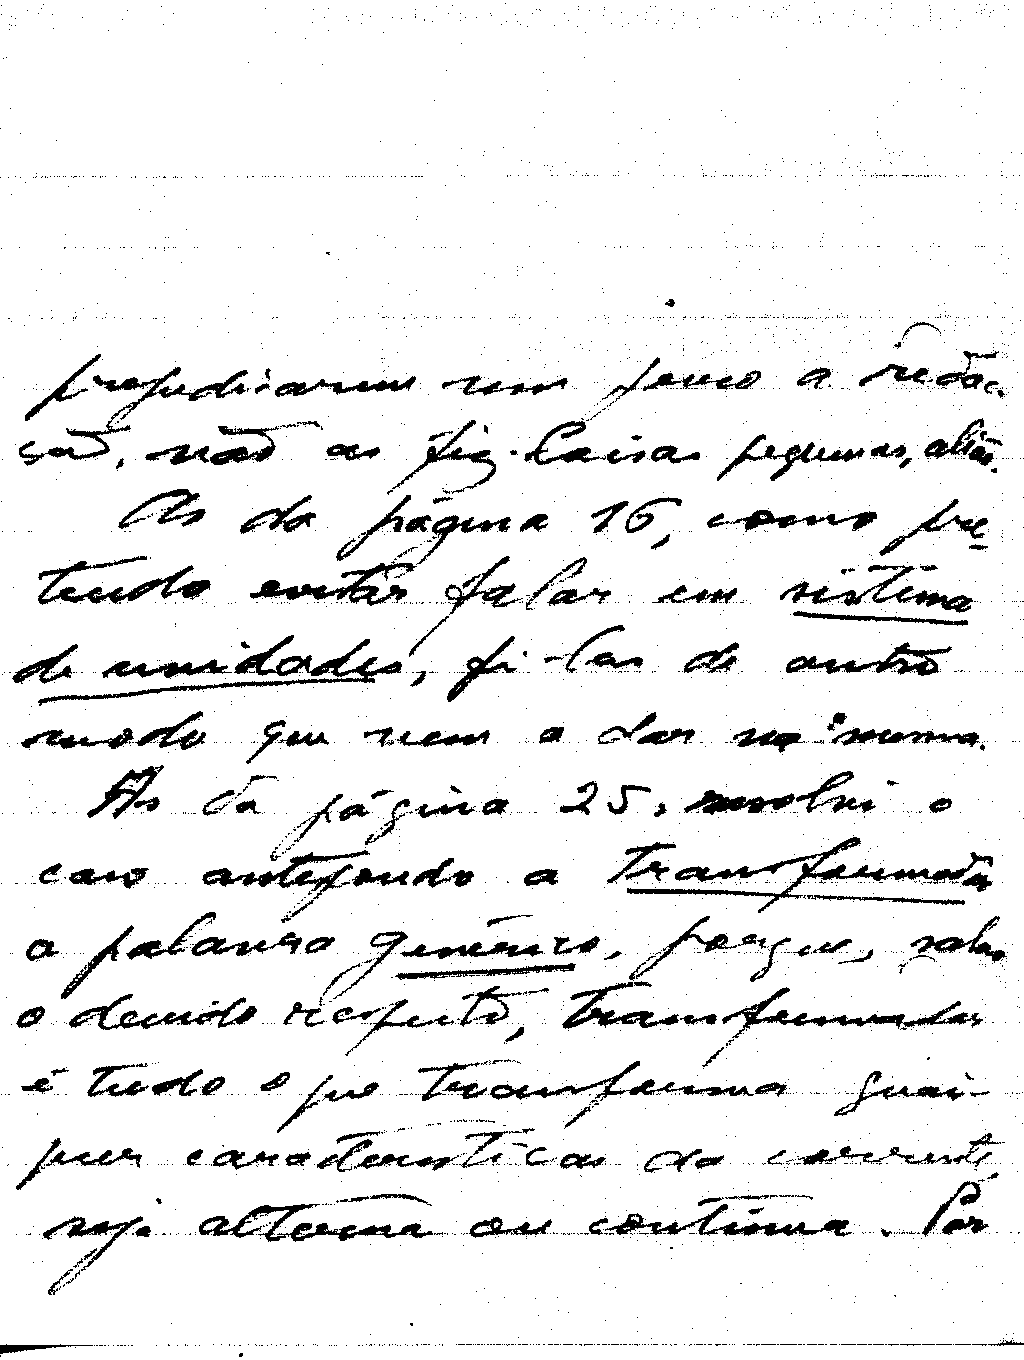 prejudicarem um pouco a redac-
ção, não as fiz. Coisas pequenas, aliás.
As da página 16, como pre-
tendo evitar falar em sistema
de unidades, fi-las de outro
modo que vem a dar na mesma.
As da página 25, resolvi o
caso antepondo a transformador
a palavra genérico, porque, salvo
o devido respeito, transformador
é tudo o que transforma quais-
quer características da corrente,
seja alterna ou contínua. Por